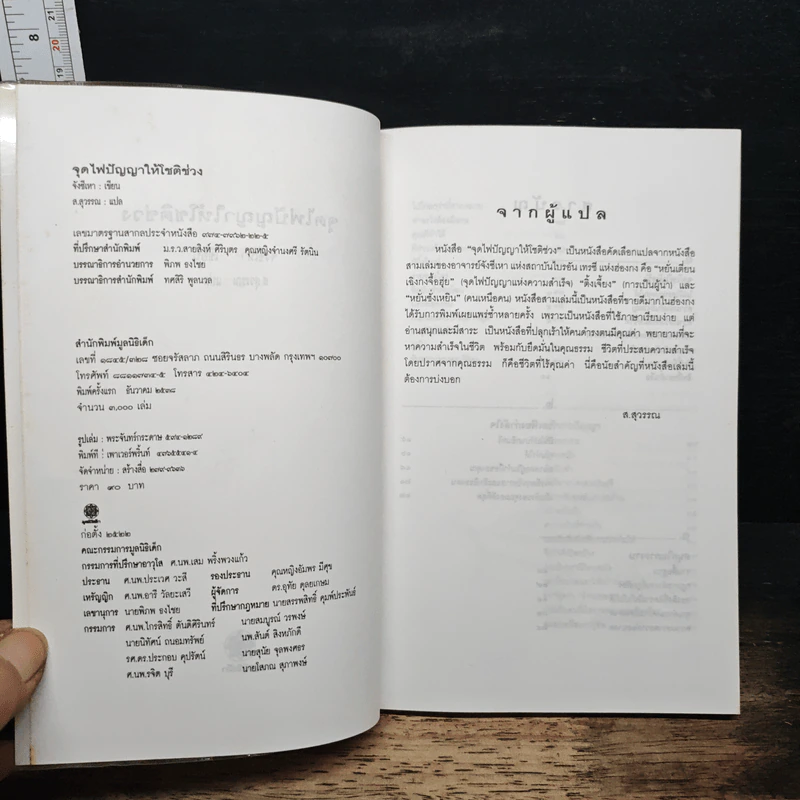 8
20
21
19
จุดไฟปัญญาให้โชติช่วง
จังซีเหา : เขียน
ส.สุวรรณ : แปล
เลขมาตรฐานสากลประจำหนังสือ ๙๗๔-๗๗๖๒-๒๒-๕
ที่ปรึกษาสำนักพิมพ์ ม.ร.ว.สายสิงห์ ศิริบุตร คุณหญิงจำนงศรี รัตนิน
บรรณาธิการอำนวยการ พิภพ ธงไชย
บรรณาธิการสำนักพิมพ์ ทศสิริ พูลนวล
สำนักพิมพ์มูลนิธิเด็ก
เลขที่ ๑๘๔๕/๓๒๘ ซอยจรัสลาภ ถนนสิรินธร บางพลัด กรุงเทพฯ ๑๐๗๐๐
โทรศัพท์ ๘๘๑๑๗๓๔-๕ โทรสาร ๔๒๔-๖๔๐๔
พิมพ์ครั้งแรก ธันวาคม ๒๕๓๘
จำนวน ๓,๐๐๐ เล่ม
รูปเล่ม : พระจันทร์กระดาษ ๕๙๔-๑๒๘๙
พิมพ์ที่ : เพาเวอร์พริ้นท์ ๔๓๖๕๕๔๑-๔
จัดจำหน่าย : สร้างสื่อ ๒๙๙-๙๖๓๖
ราคา ๙๐ บาท
ก่อตั้ง ๒๕๒๒
คณะกรรมการมูลนิธิเด็ก
กรรมการที่ปรึกษาอาวุโส ศ.นพ.เสม พริ้งพวงแก้ว
ประธาน ศ.นพ.ประเวศ วะสี รองประธาน คุณหญิงอัมพร มีศุข
เหรัญญิก ศ.นพ.อารี วัลยะเสวี ผู้จัดการ ดร.อุทัย ดุลยเกษม
เลขานุการ นายพิภพ ธงไชย ที่ปรึกษากฎหมาย นายสรรพสิทธิ์ คุมพ์ประพันธ์
กรรมการ ศ.นพ.ไกรสิทธิ์ ตันติศิรินทร์ นายสมบูรณ์ วรพงษ์
นายนิทัศน์ ถนอมทรัพย์ นพ.สันต์ สิงหภักดี
รศ.ดร.ประกอบ คุปรัตน์ นายสุนัย จุลพงศธร
ศ.นพ.รจิต บุรี นายโสภณ สุภาพงษ์
จากผู้แปล
หนังสือ "จุดไฟปัญญาให้โชติช่วง" เป็นหนังสือคัดเลือกแปลจากหนังสือ
สามเล่มของอาจารย์จังซีเหา แห่งสถาบันไบรอัน เทรซี่ แห่งฮ่องกง คือ "หยั่นเตี่ยน
เฉิงกงจื้อฮุ่ย" (จุดไฟปัญญาแห่งความสำเร็จ) "ติ้งเจี้ยง" (การเป็นผู้นำ) และ
"หยั่นซั่งเหยิน" (คนเหนือคน) หนังสือสามเล่มนี้เป็นหนังสือที่ขายดีมากในฮ่องกง
ได้รับการพิมพ์เผยแพร่ซ้ำหลายครั้ง เพราะเป็นหนังสือที่ใช้ภาษาเรียบง่าย แต่
อ่านสนุกและมีสาระ เป็นหนังสือที่ปลุกเร้าให้คนดำรงตนมีคุณค่า พยายามที่จะ
หาความสำเร็จในชีวิต พร้อมกับยึดมั่นในคุณธรรม ชีวิตที่ประสบความสำเร็จ
โดยปราศจากคุณธรรม ก็คือชีวิตที่ไร้คุณค่า นี่คือนัยสำคัญที่หนังสือเล่มนี้
ต้องการบ่งบอก
ส.สุวรรณ